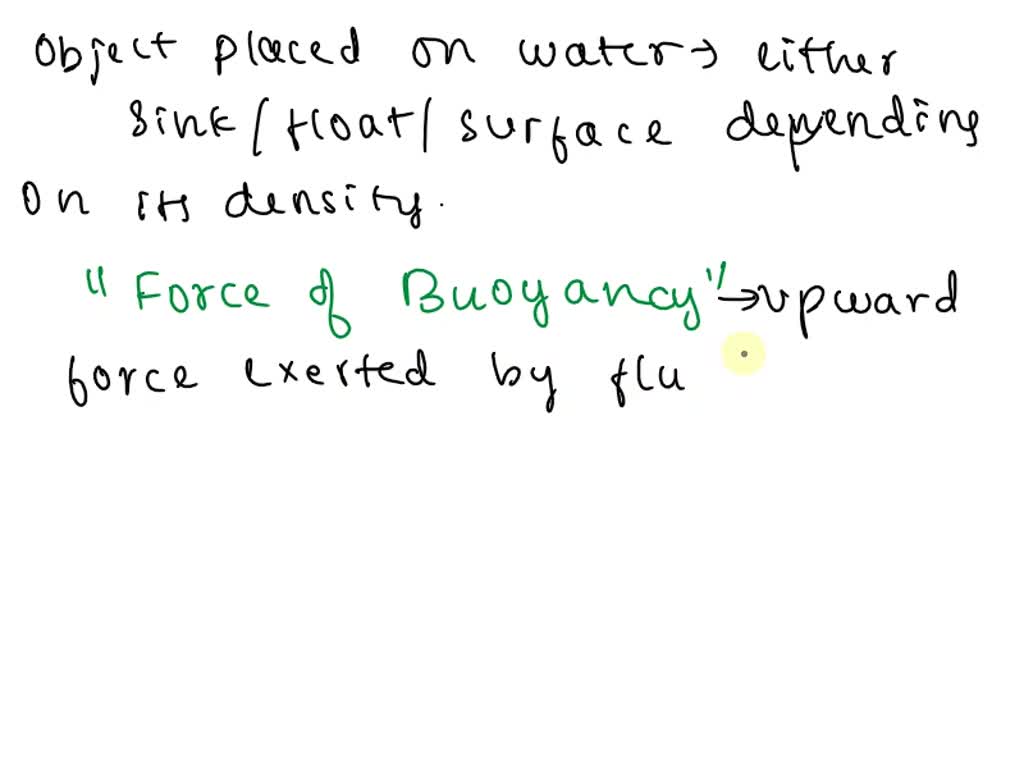 Object placed on water → either
sink / float / surface depending
on its density.
"Force of Buoyancy" → upward
force exerted by flu